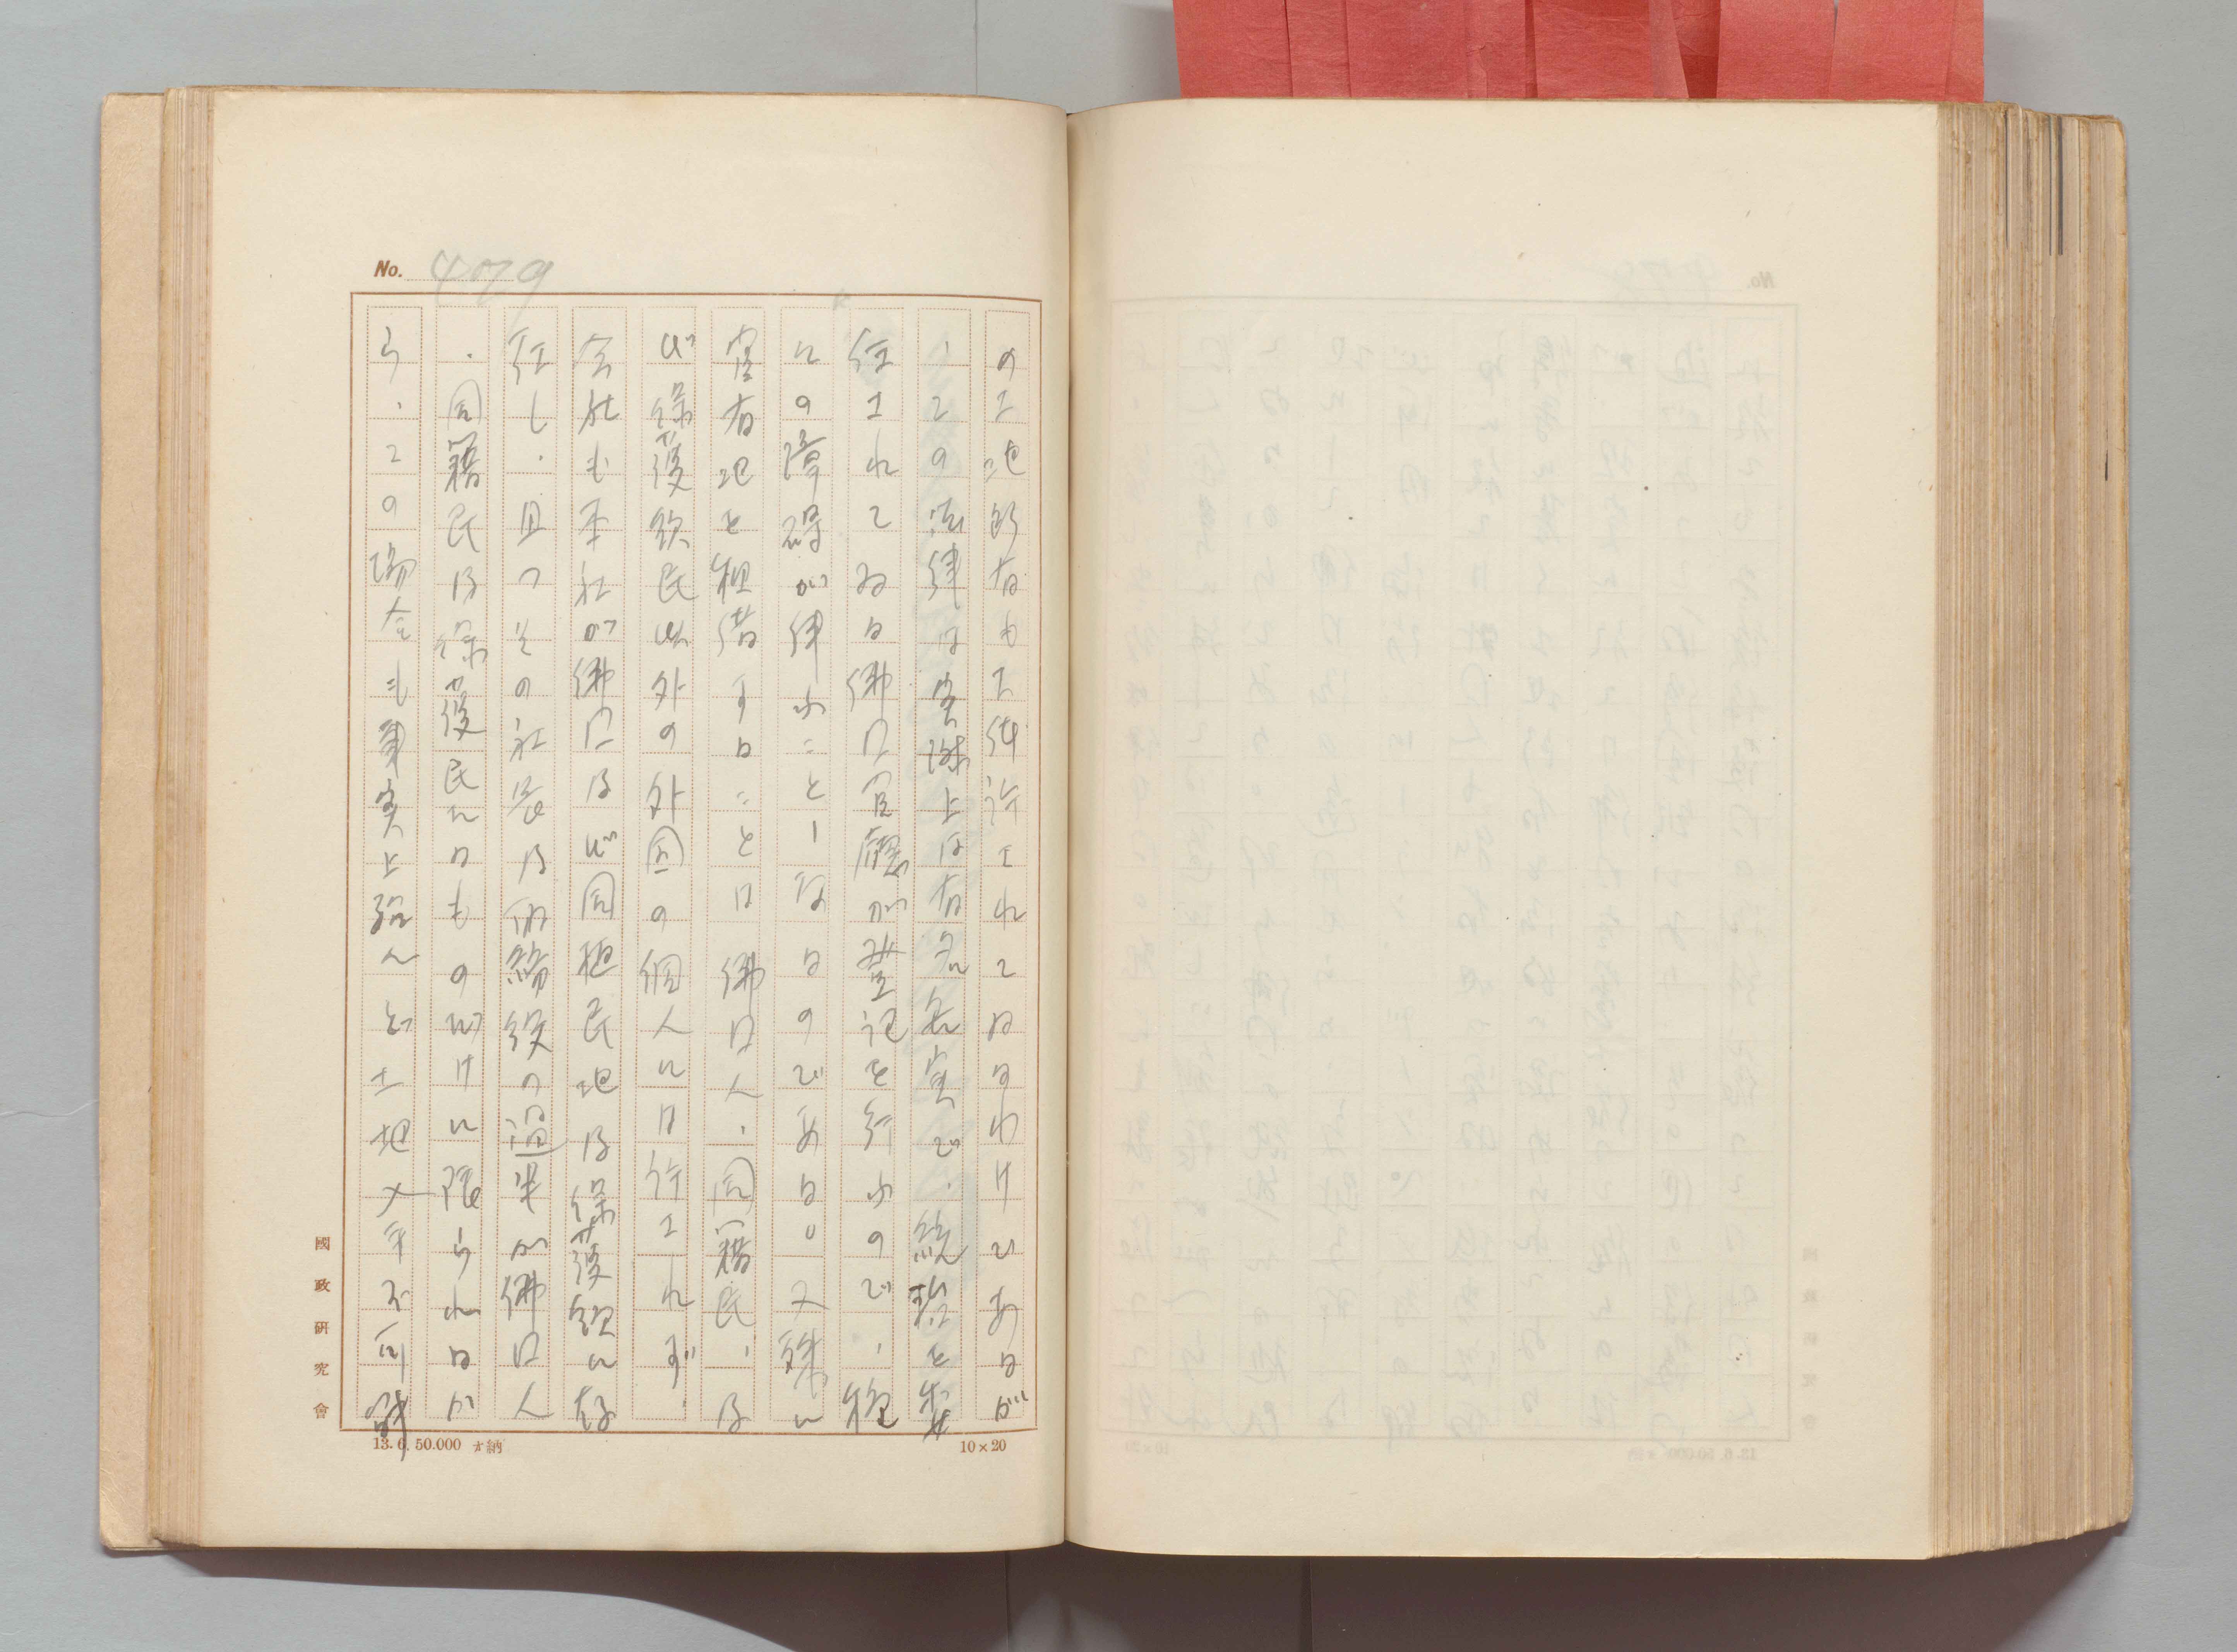 No. 479
の土地所有も許されてゐるわけであるが
、この法律は實際上は有名無實で、を
任されてゐる佛印官廳が登記を行ふので、種
々の障碍が伴ふことゝなるのである。又殊に
官有地を租借することは佛印人、国籍民、及
び保護領民以外の外国の個人には許されず、
会社も本社が佛印及び国植民地及保護領に存
在し、且つその社長及取締役の過半が佛印人
、国籍民及保護民たるものだけに限られるか
ら、この場合も事実上殆んど土地入手不可能
國政研究會
13. 6. 50.000 納
10×20